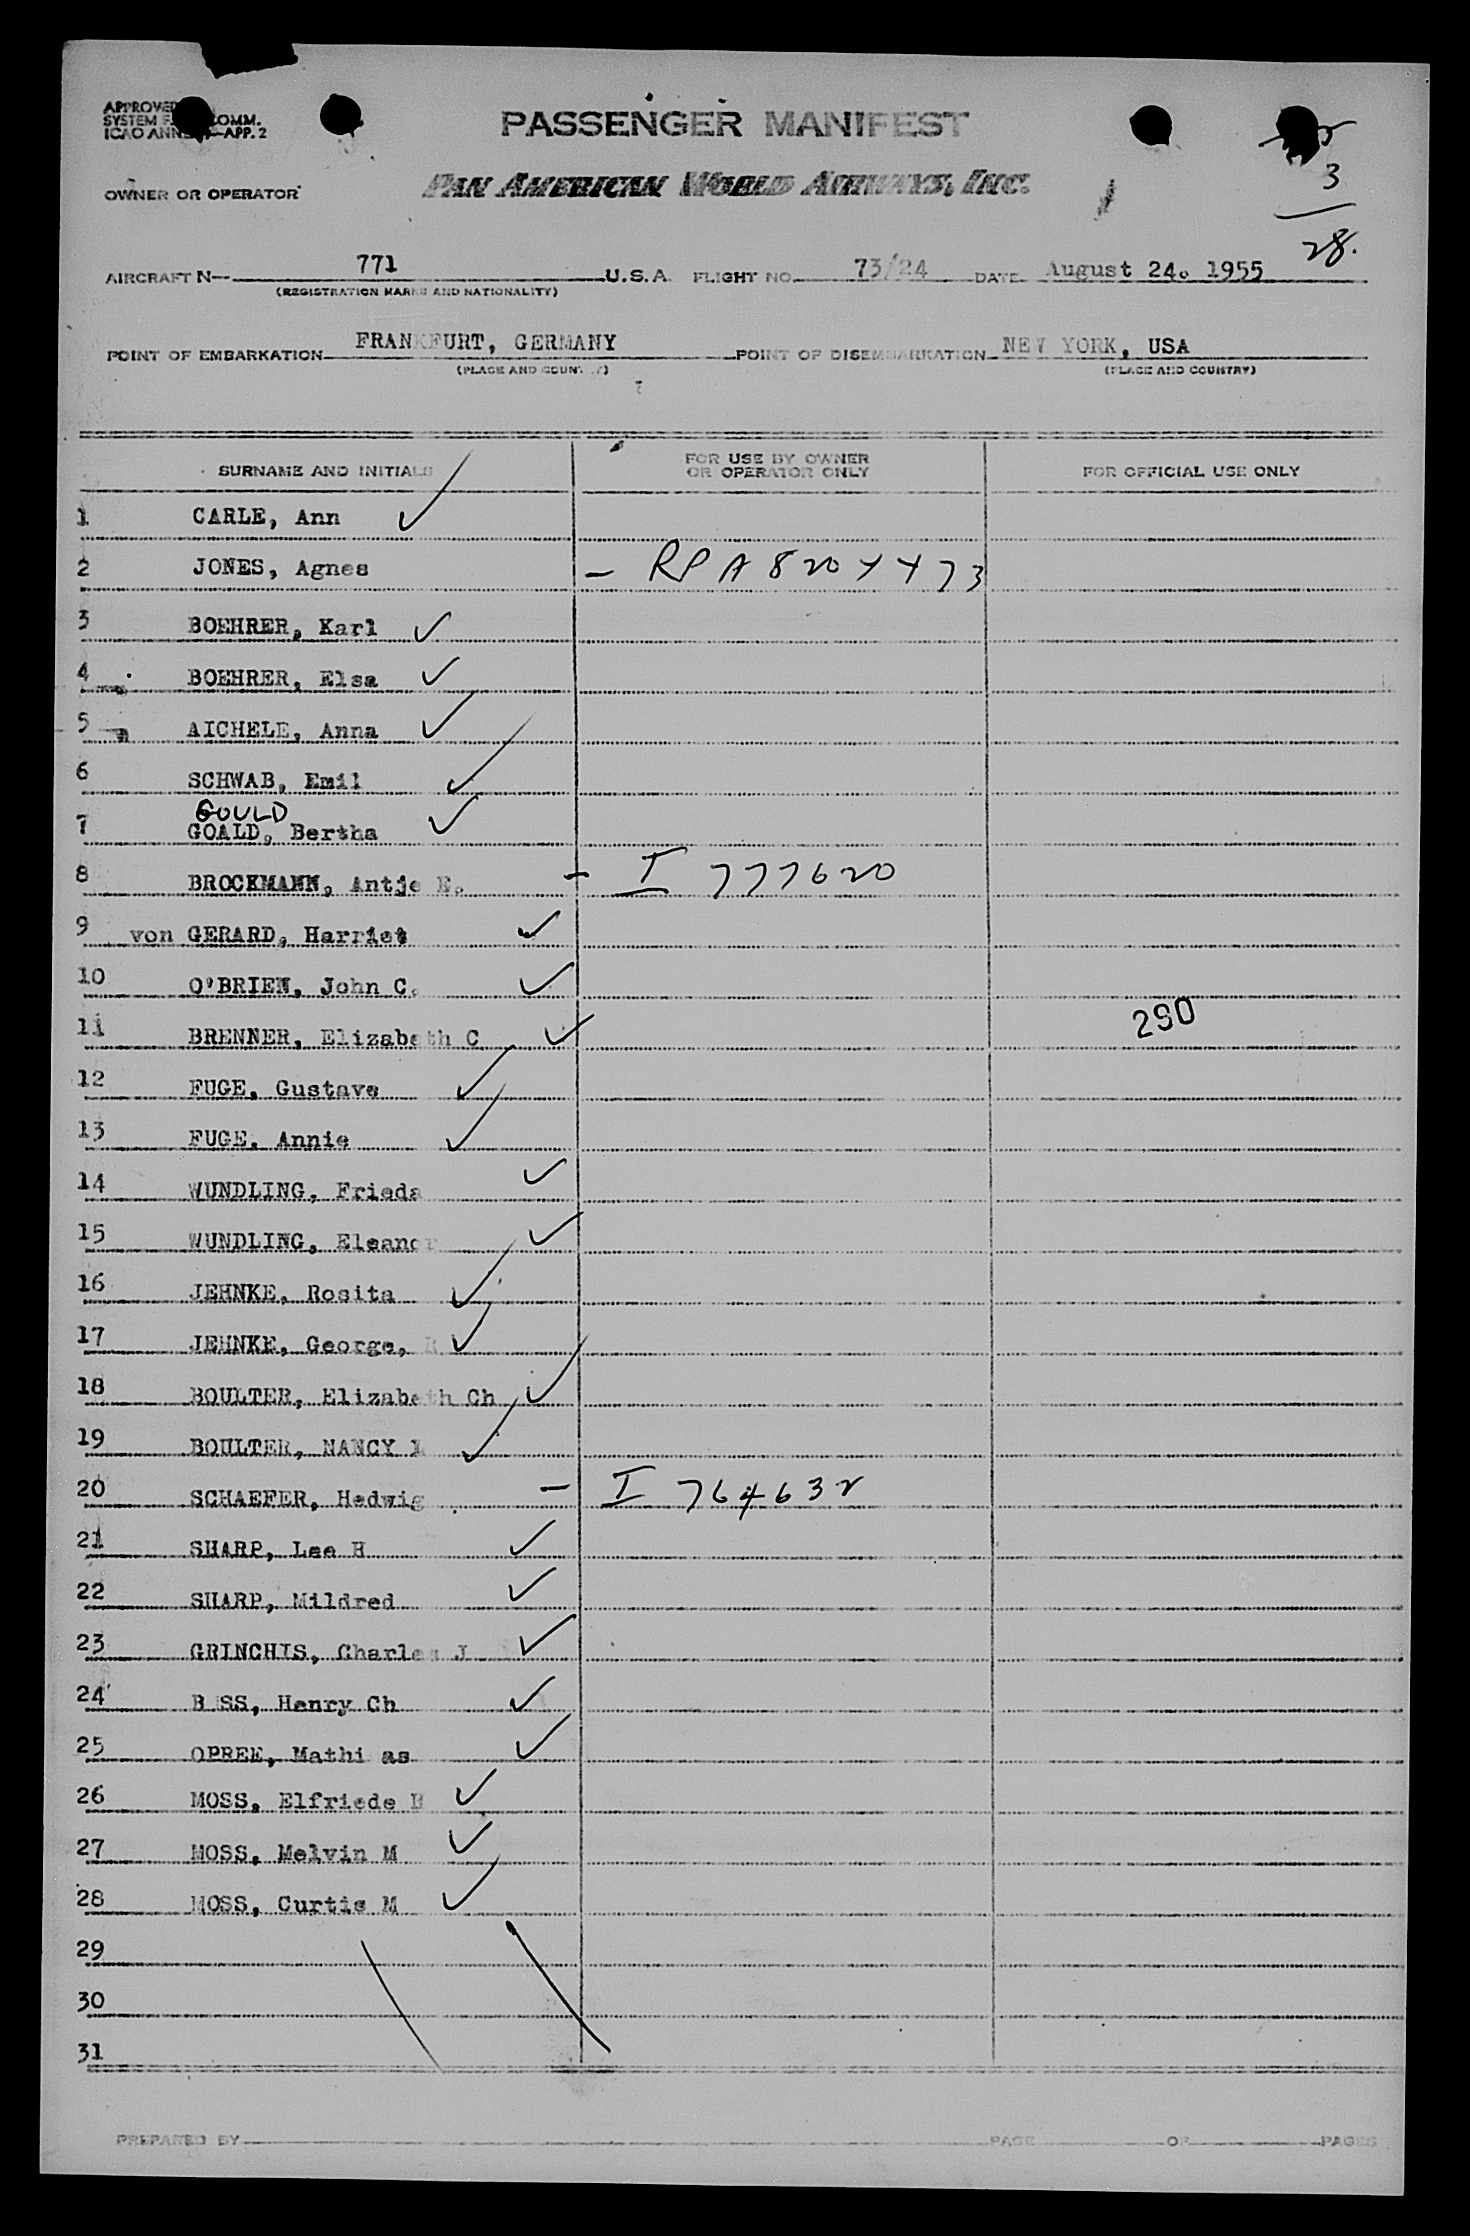 PASSENGER MANIFEST
APPROVED
SYSTEM COMM.
ICAO APP. 2
3
28.
OWNER OR OPERATOR PAN AMERICAN WORLD AIRWAYS, INC.
AIRCRAFT N— 771 U.S.A. FLIGHT NO. 73/24 DATE August 24. 1955
(REGISTRATION MARKS AND NATIONALITY)
POINT OF EMBARKATION FRANKFURT, GERMANY POINT OF DISEMBARKATION NEW YORK, USA
(PLACE AND COUNTRY) (PLACE AND COUNTRY)
SURNAME AND INITIALS FOR USE BY OWNER OR OPERATOR ONLY FOR OFFICIAL USE ONLY
1 CARLE, Ann ✓
2 JONES, Agnes – RPA
3 BOEHRER, Karl ✓
4 BOEHRER, Elsa ✓
5 AICHELE, Anna ✓
6 SCHWAB, Emil ✓
GOULD
7 GOALD, Bertha ✓
8 BROCKMANN, Antje E. – I 777620
9 von GERARD, Harriet ✓
10 O'BRIEN, John C. ✓
290
11 BRENNER, Elizabeth C ✓
12 FUGE, Gustave ✓
13 FUGE, Annie ✓
14 WUNDLING, Frieda ✓
15 WUNDLING, Eleanor ✓
16 JEHNKE, Rosita ✓
17 JEHNKE, George, R ✓
18 BOULTER, Elizabeth Ch ✓
19 BOULTER, NANCY ✓
20 SCHAEFER, Hedwig – I 764632
21 SHARP, Lee H ✓
22 SHARP, Mildred ✓
23 GRINCHIS, Charles J ✓
24 B SS, Henry Ch ✓
25 OPREE, Mathi as ✓
26 MOSS, Elfriede ✓
27 MOSS, Melvin M ✓
28 MOSS, Curtis M ✓
29
30
31
PREPARED BY PAGE OF PAGES